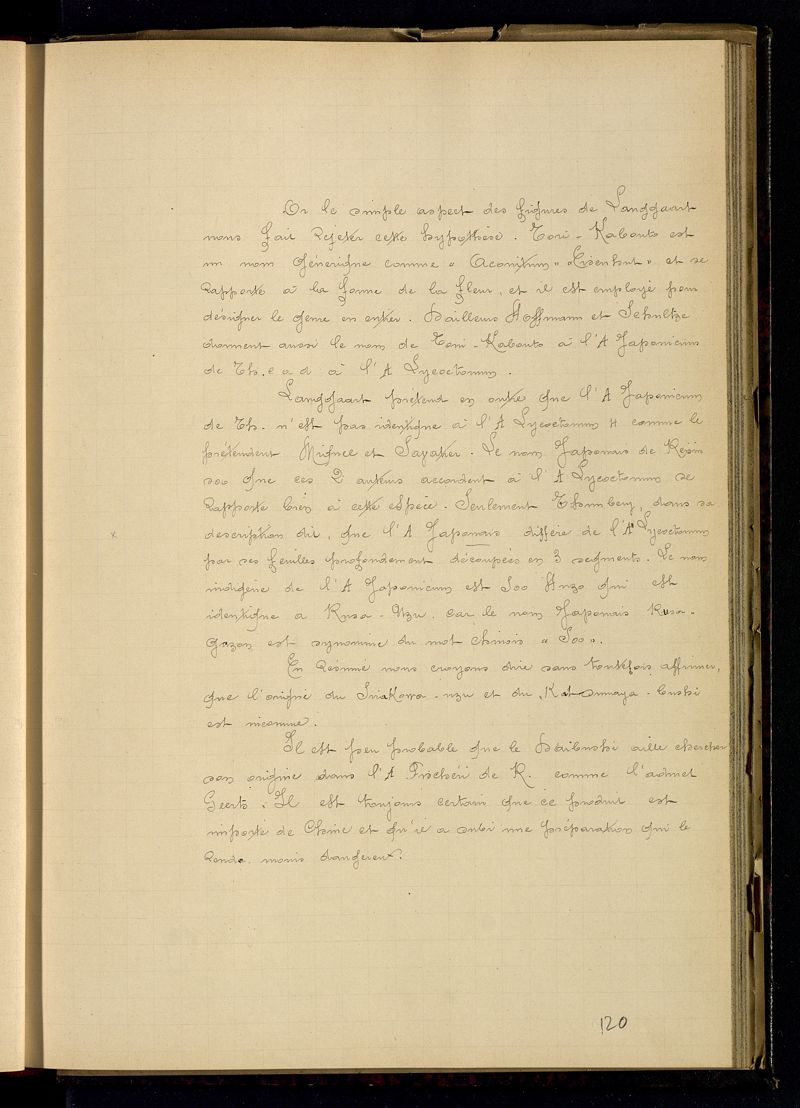 Or le simple aspect des figures de Langgaart
nous fait rejeter cette hypothèse. Tori-Kabouto est
un nom générique comme "Aconitum" "Eisenhut" et se
rapporte à la forme de la fleur, et il est employé pour
désigner le genre en entier. Dailleurs Hoffmann et Schultze
donnent aussi le nom de Tori-Kabouto à l'A Japonicum
de Th. e a d à l'A Lycoctonum.
Langgaart prétend en outre que l'A Japonicum
de Th. n'est pas identique à l'A Lycoctonum H comme le
prétendent Miquel et Savatier. Le nom Japonais de Reijin
soo que ces 2 auteurs accordent à l'A Lycoctonum se
rapporte bien à cette espèce. Seulement Thunberg, dans sa
x
description dit, que l'A Japonais diffère de l'A Lycoctonum
par ses feuilles profondement découpées en 3 segments. Le nom
indigène de l'A Japonicum est Soo Huzo qui est
identique a Kusa-Uzu. car le nom Japonais Kusa-
gazon est synonime du mot chinois "Soo".
En Résumé nous croyons dire sans toutefois affirmer,
que l'origine du Shakowa-uzu et du Katsuyama-bushi
est inconnue.
Il est peu probable que le Daibushi aille chercher
son origine dans l'A Fischéri de R. comme l'admet
Geerts. Il est toujours certain que ce produit est
importé de Chine et qu'il a subi une préparation qui le
rende moins dangereux.
120